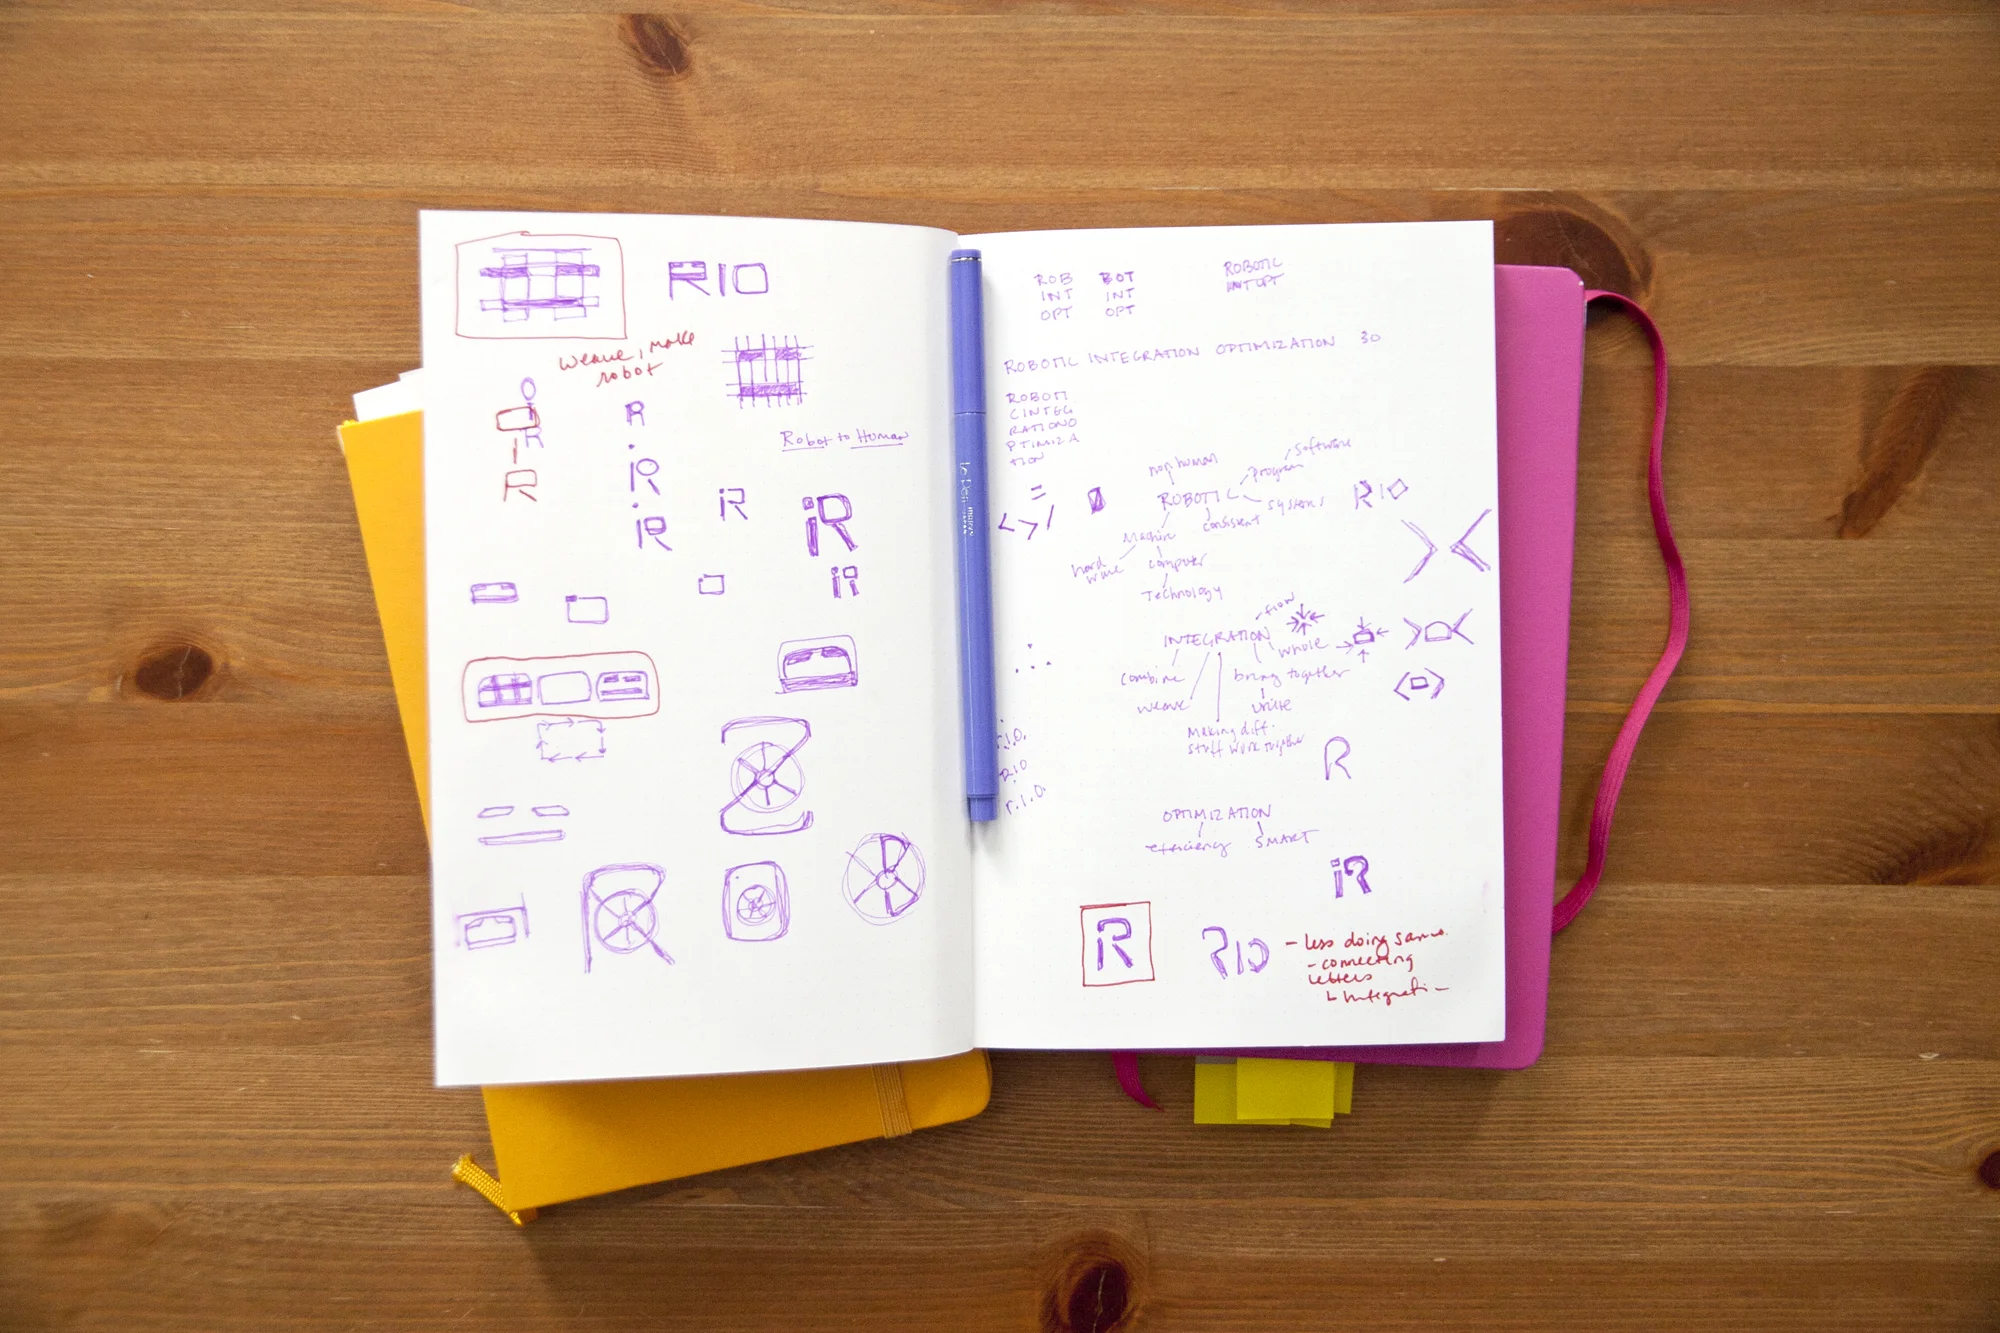 RIO
weave, make
robot
Robot to Human
R
R
iR
iR
iR
iR
iR
R
ROB
INT
OPT
BOT
INT
OPT
ROBOTIC
INT OPT
ROBOTIC INTEGRATION OPTIMIZATION 30
ROBOTI
CINTEG
RATIONO
PTIMIZA
TION
non human
Software
program
ROBOTIC
systems
consistent
Machine
hard
ware
computer
Technology
RIO
flow
INTEGRATION
whole
combine
bring together
weave
unite
Making diff.
stuff work together
R
r.i.o.
RIO
r.i.o.
OPTIMIZATION
efficiency
SMART
iR
iR
RIO
- less doing same
- connecting
letters
le Pen